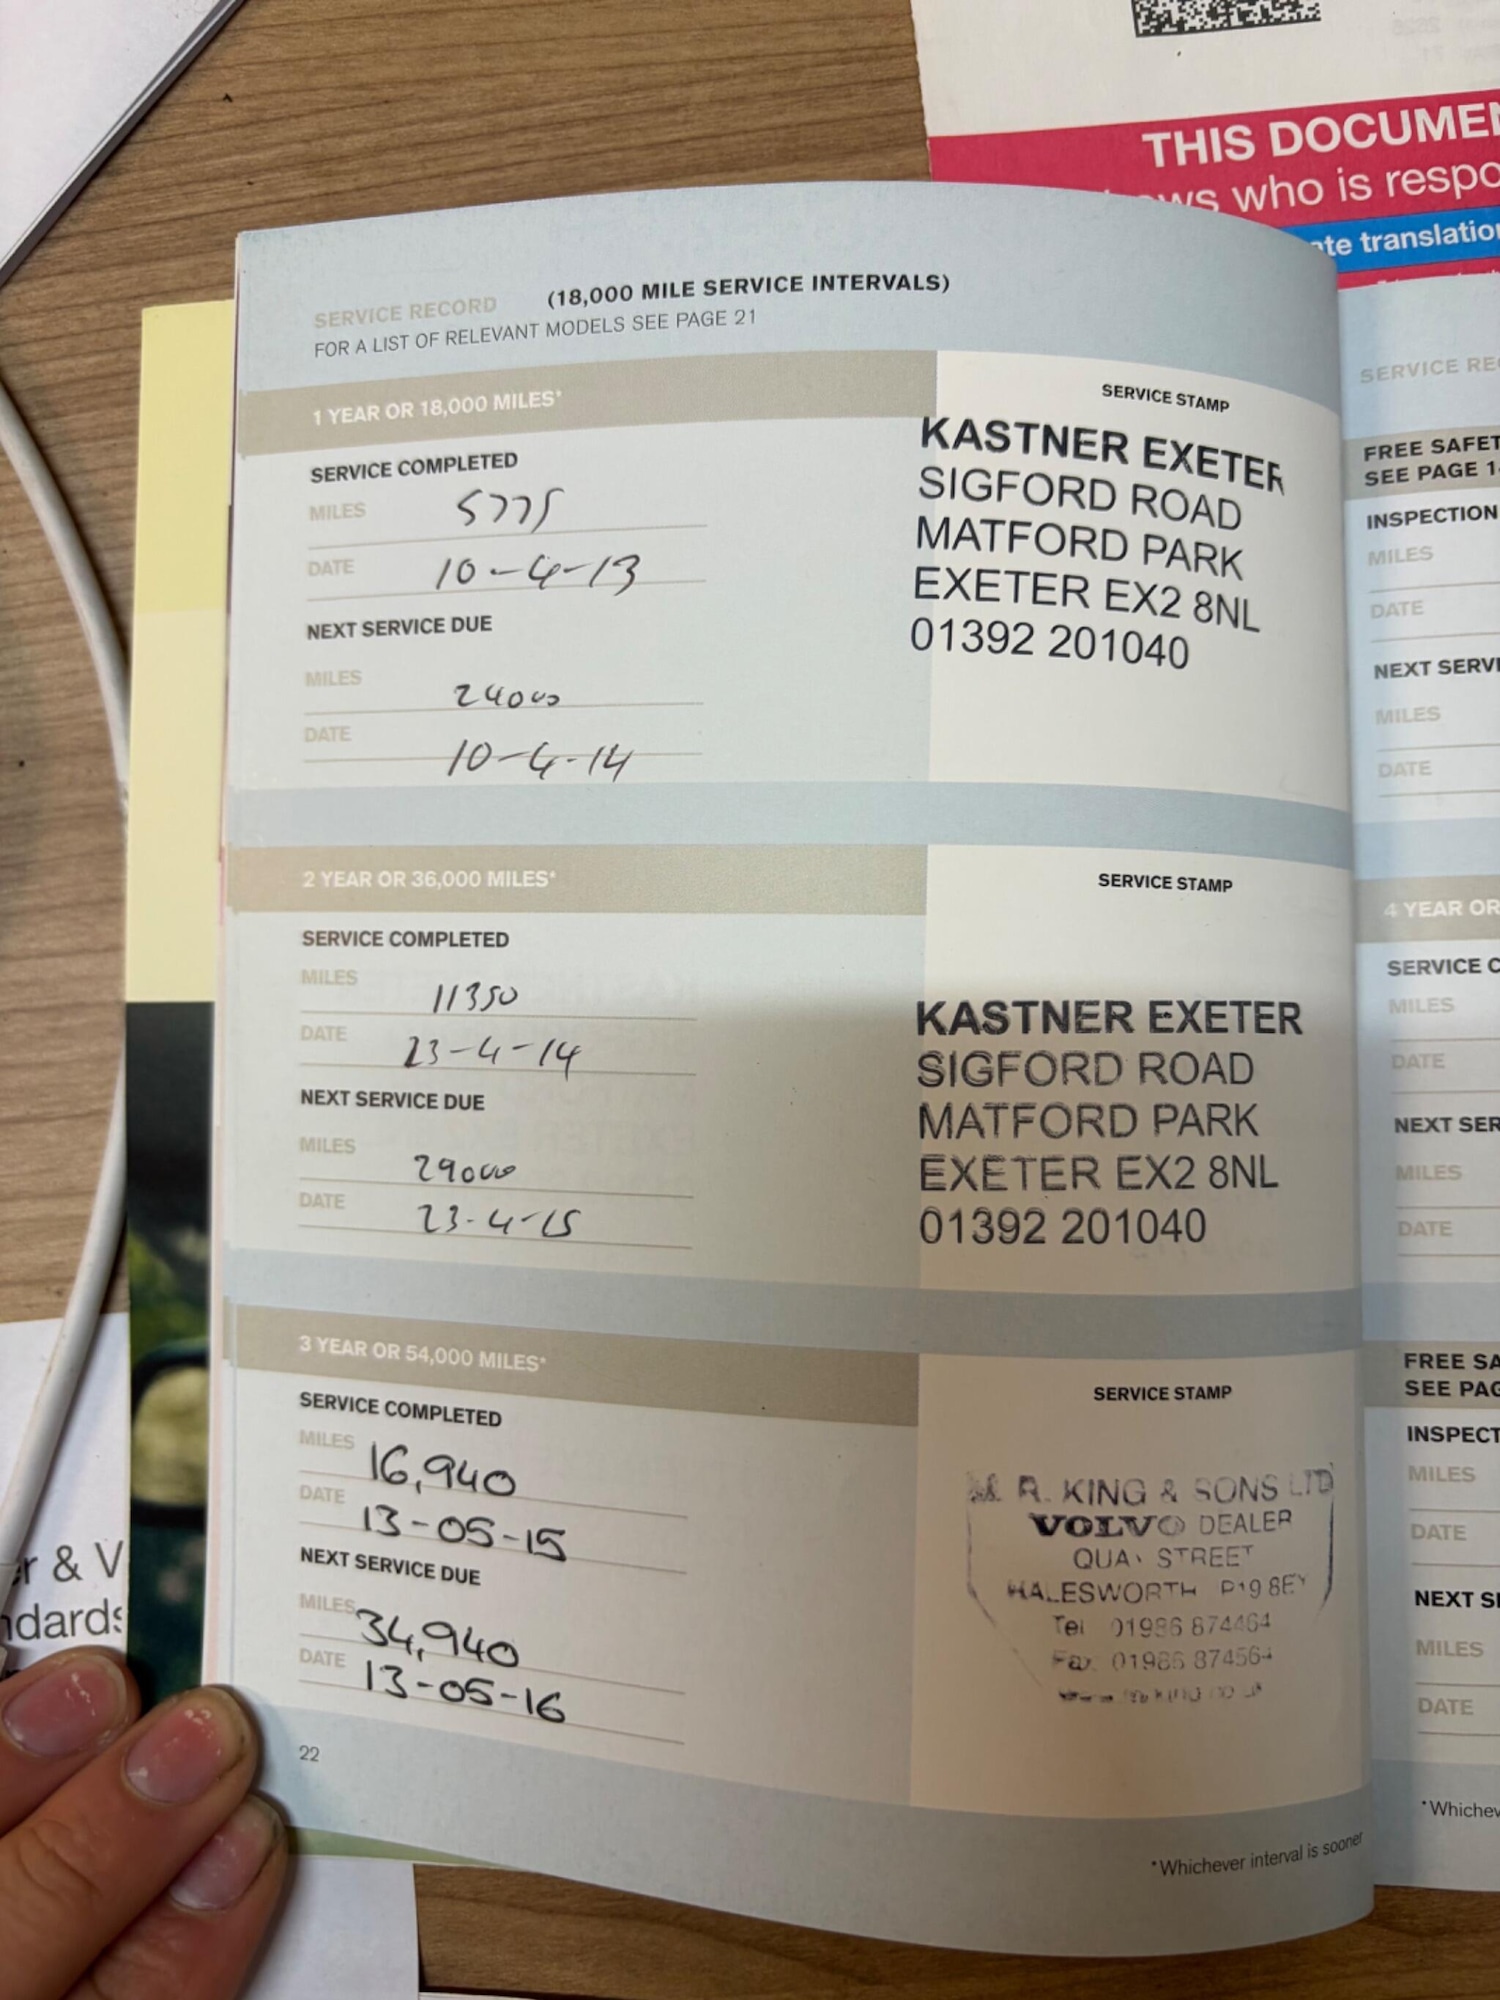 THIS DOCUMEN
ws who is respo
te translatio
SERVICE RECORD (18,000 MILE SERVICE INTERVALS)
FOR A LIST OF RELEVANT MODELS SEE PAGE 21
1 YEAR OR 18,000 MILES*
SERVICE STAMP
SERVICE COMPLETED
MILES 5775
DATE 10-4-13
NEXT SERVICE DUE
MILES 24000
DATE 10-4-14
KASTNER EXETER
SIGFORD ROAD
MATFORD PARK
EXETER EX2 8NL
01392 201040
2 YEAR OR 36,000 MILES*
SERVICE STAMP
SERVICE COMPLETED
MILES 11350
DATE 23-4-14
NEXT SERVICE DUE
MILES 29000
DATE 23-4-15
KASTNER EXETER
SIGFORD ROAD
MATFORD PARK
EXETER EX2 8NL
01392 201040
3 YEAR OR 54,000 MILES*
SERVICE STAMP
SERVICE COMPLETED
MILES 16,940
DATE 13-05-15
NEXT SERVICE DUE
MILES 34,940
DATE 13-05-16
M. R. KING & SONS LTD
VOLVO DEALER
QUAY STREET
HALESWORTH P19 8EY
Tel 01986 874464
Fax 01986 874564
22
*Whichever interval is sooner
SERVICE RE
FREE SAFET
SEE PAGE 1
INSPECTION
MILES
DATE
NEXT SERVI
MILES
DATE
4 YEAR OR
SERVICE C
MILES
DATE
NEXT SER
MILES
DATE
FREE SA
SEE PAG
INSPECT
MILES
DATE
NEXT SE
MILES
DATE
*Whichev
r & V
ndards